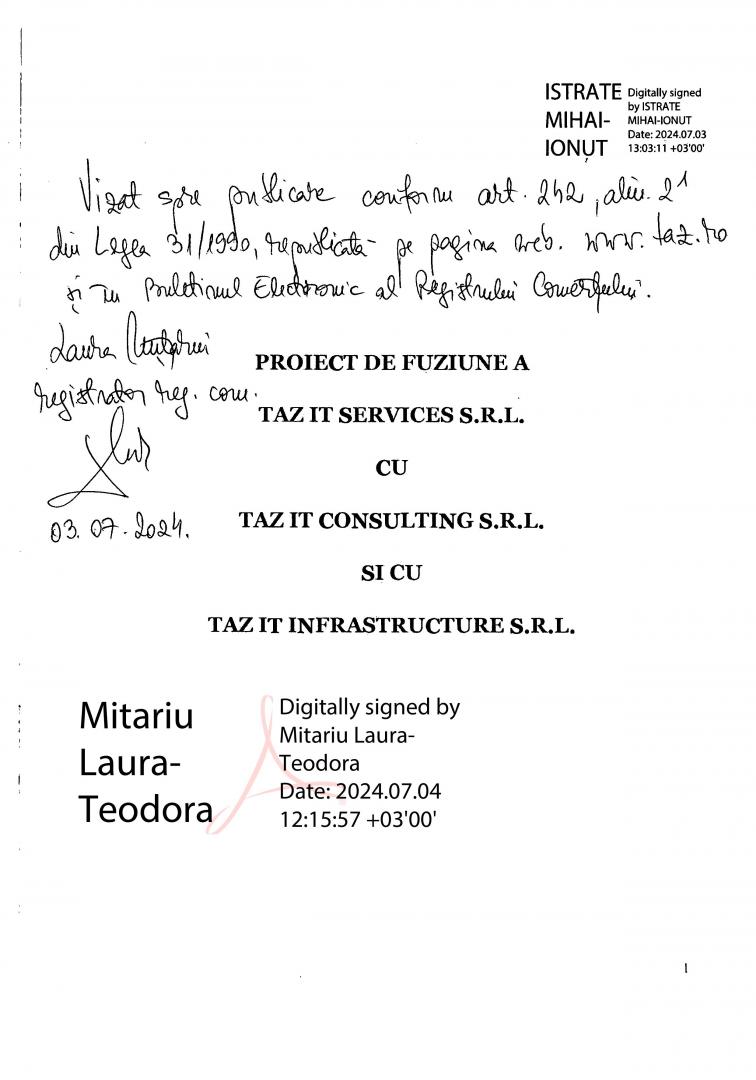 ISTRATE
MIHAI-
IONUȚ
Digitally signed
by ISTRATE
MIHAI-IONUT
Date: 2024.07.03
13:03:11 +03'00'
Vizat spre publicare conform art. 242, alin. 2¹
din Legea 31/1990, republicată pe pagina web. www.taz.ro
și în Buletinul Electronic al Registrului Comerțului.
Laura
registrator reg. com.
03.07.2024.
PROIECT DE FUZIUNE A
TAZ IT SERVICES S.R.L.
CU
TAZ IT CONSULTING S.R.L.
SI CU
TAZ IT INFRASTRUCTURE S.R.L.
Mitariu
Laura-
Teodora
Digitally signed by
Mitariu Laura-
Teodora
Date: 2024.07.04
12:15:57 +03'00'
1